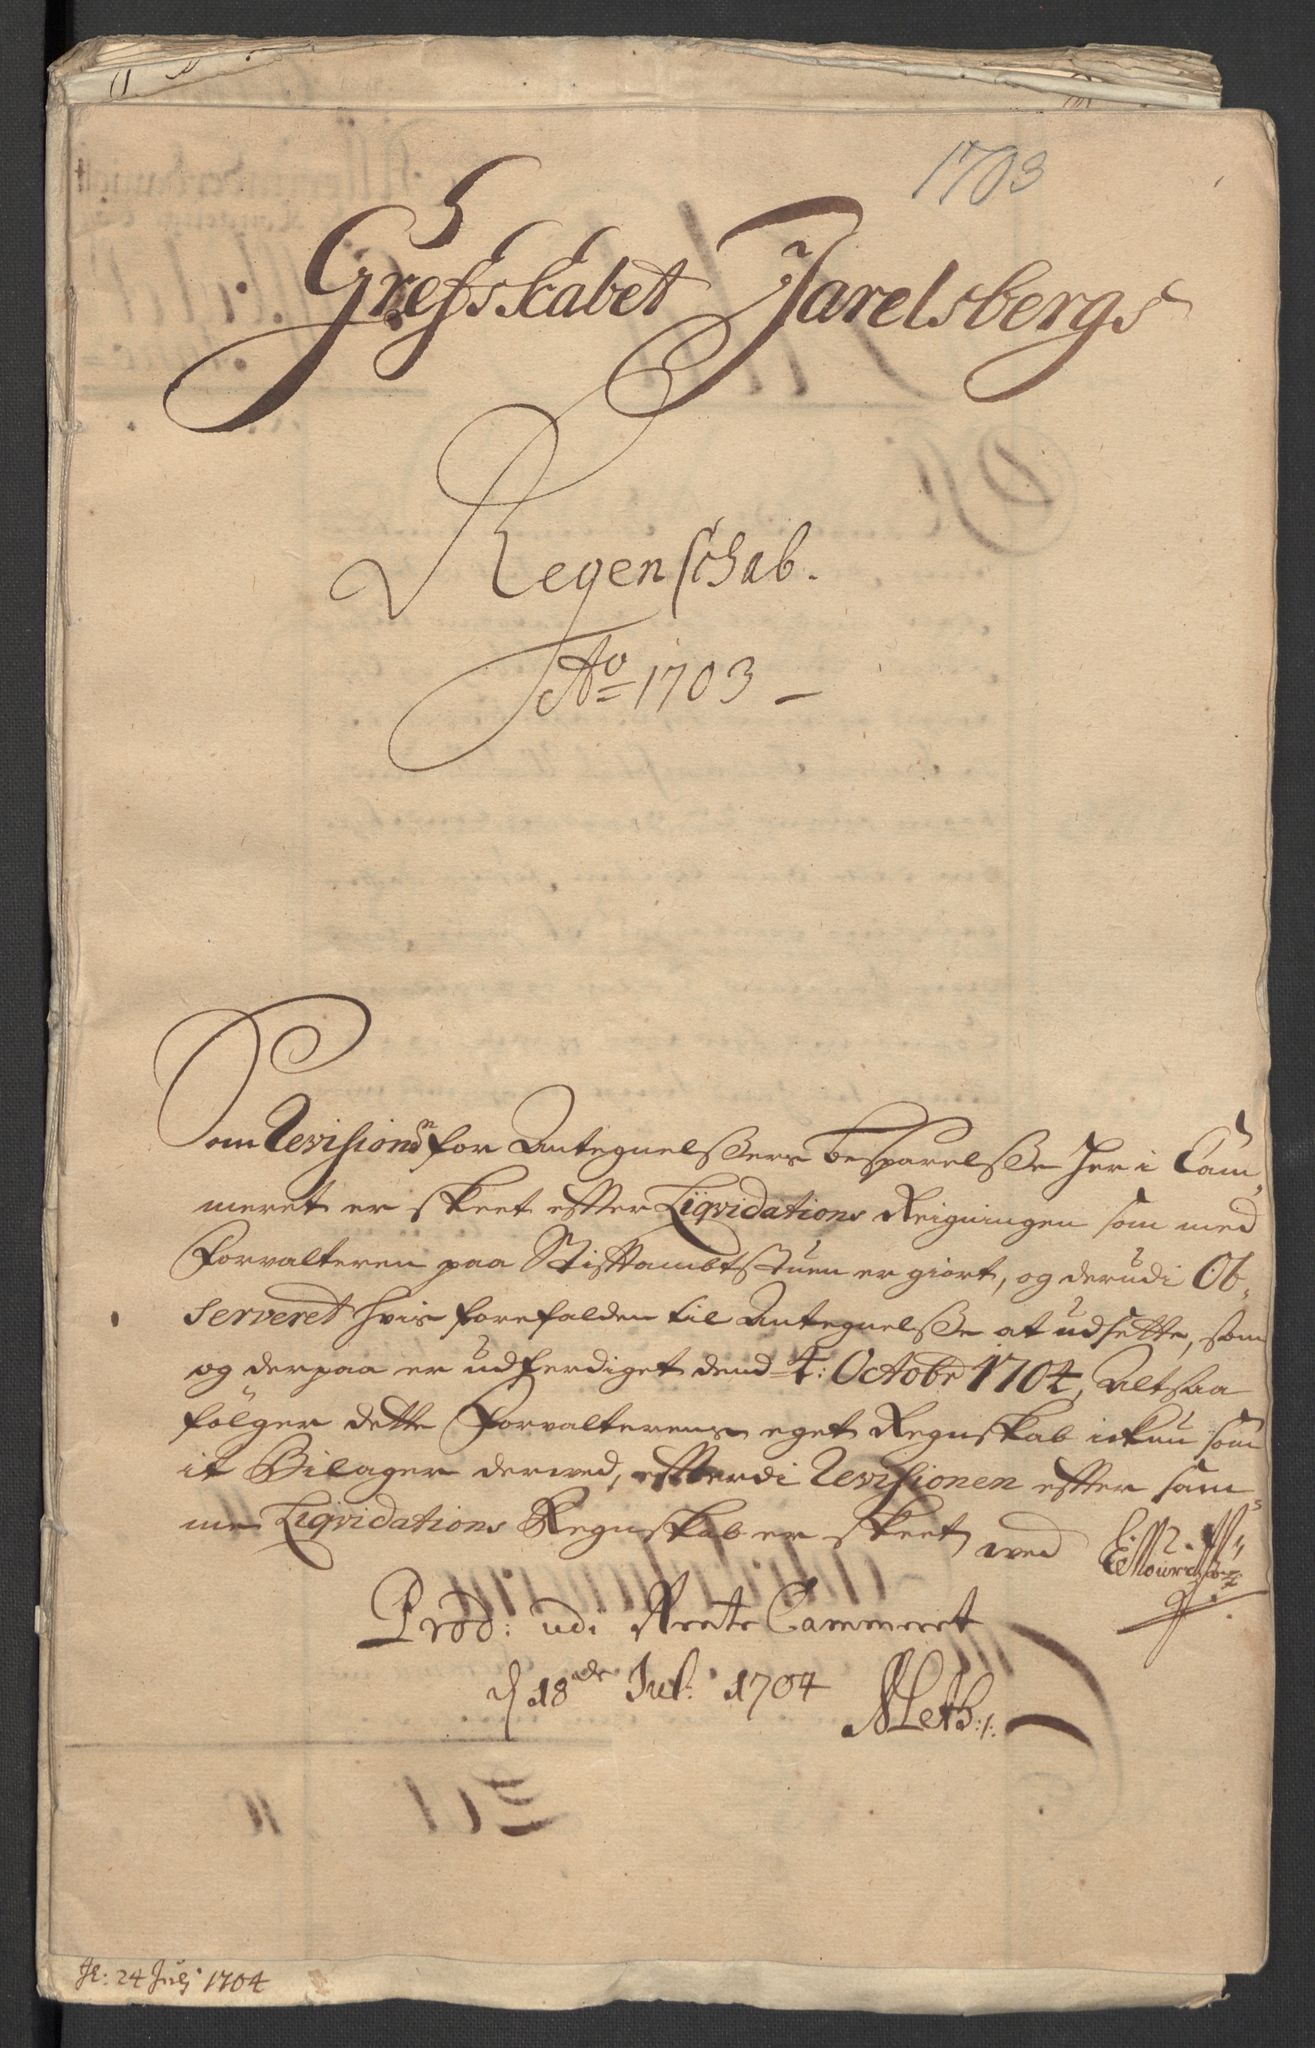 1703
Grefsskabet Jarelsbergs
Regenschab.
Ao 1703 -
Som Revisionen for Antegnelssers besparelsse her i Cam,
meret er skeet effter Liqvidations Reigningen som med
Forvalteren paa Stiftambtstuen er giort, og derudi Ob,
serveret hvis forefalden til Antegnelsse at udsette, som
og derpaa er udferdiget dend 4: Octobr 1704, Altsaa
følger dette Forvalterens eget Regnskab ickun som
it Bilager derved, effterdi Revisionen effter sam,
me Liqvidations Regnskab er skeet, ved
Prod: udi Rente Cammeret
d 18de Jul: 1704
Leth:/:
Jl: 24 Julj 1704